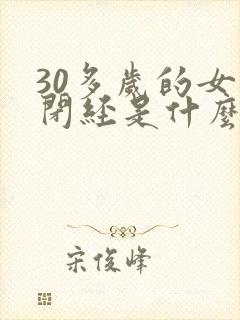 30多歲的女
閉經是什麼
宋俊峰